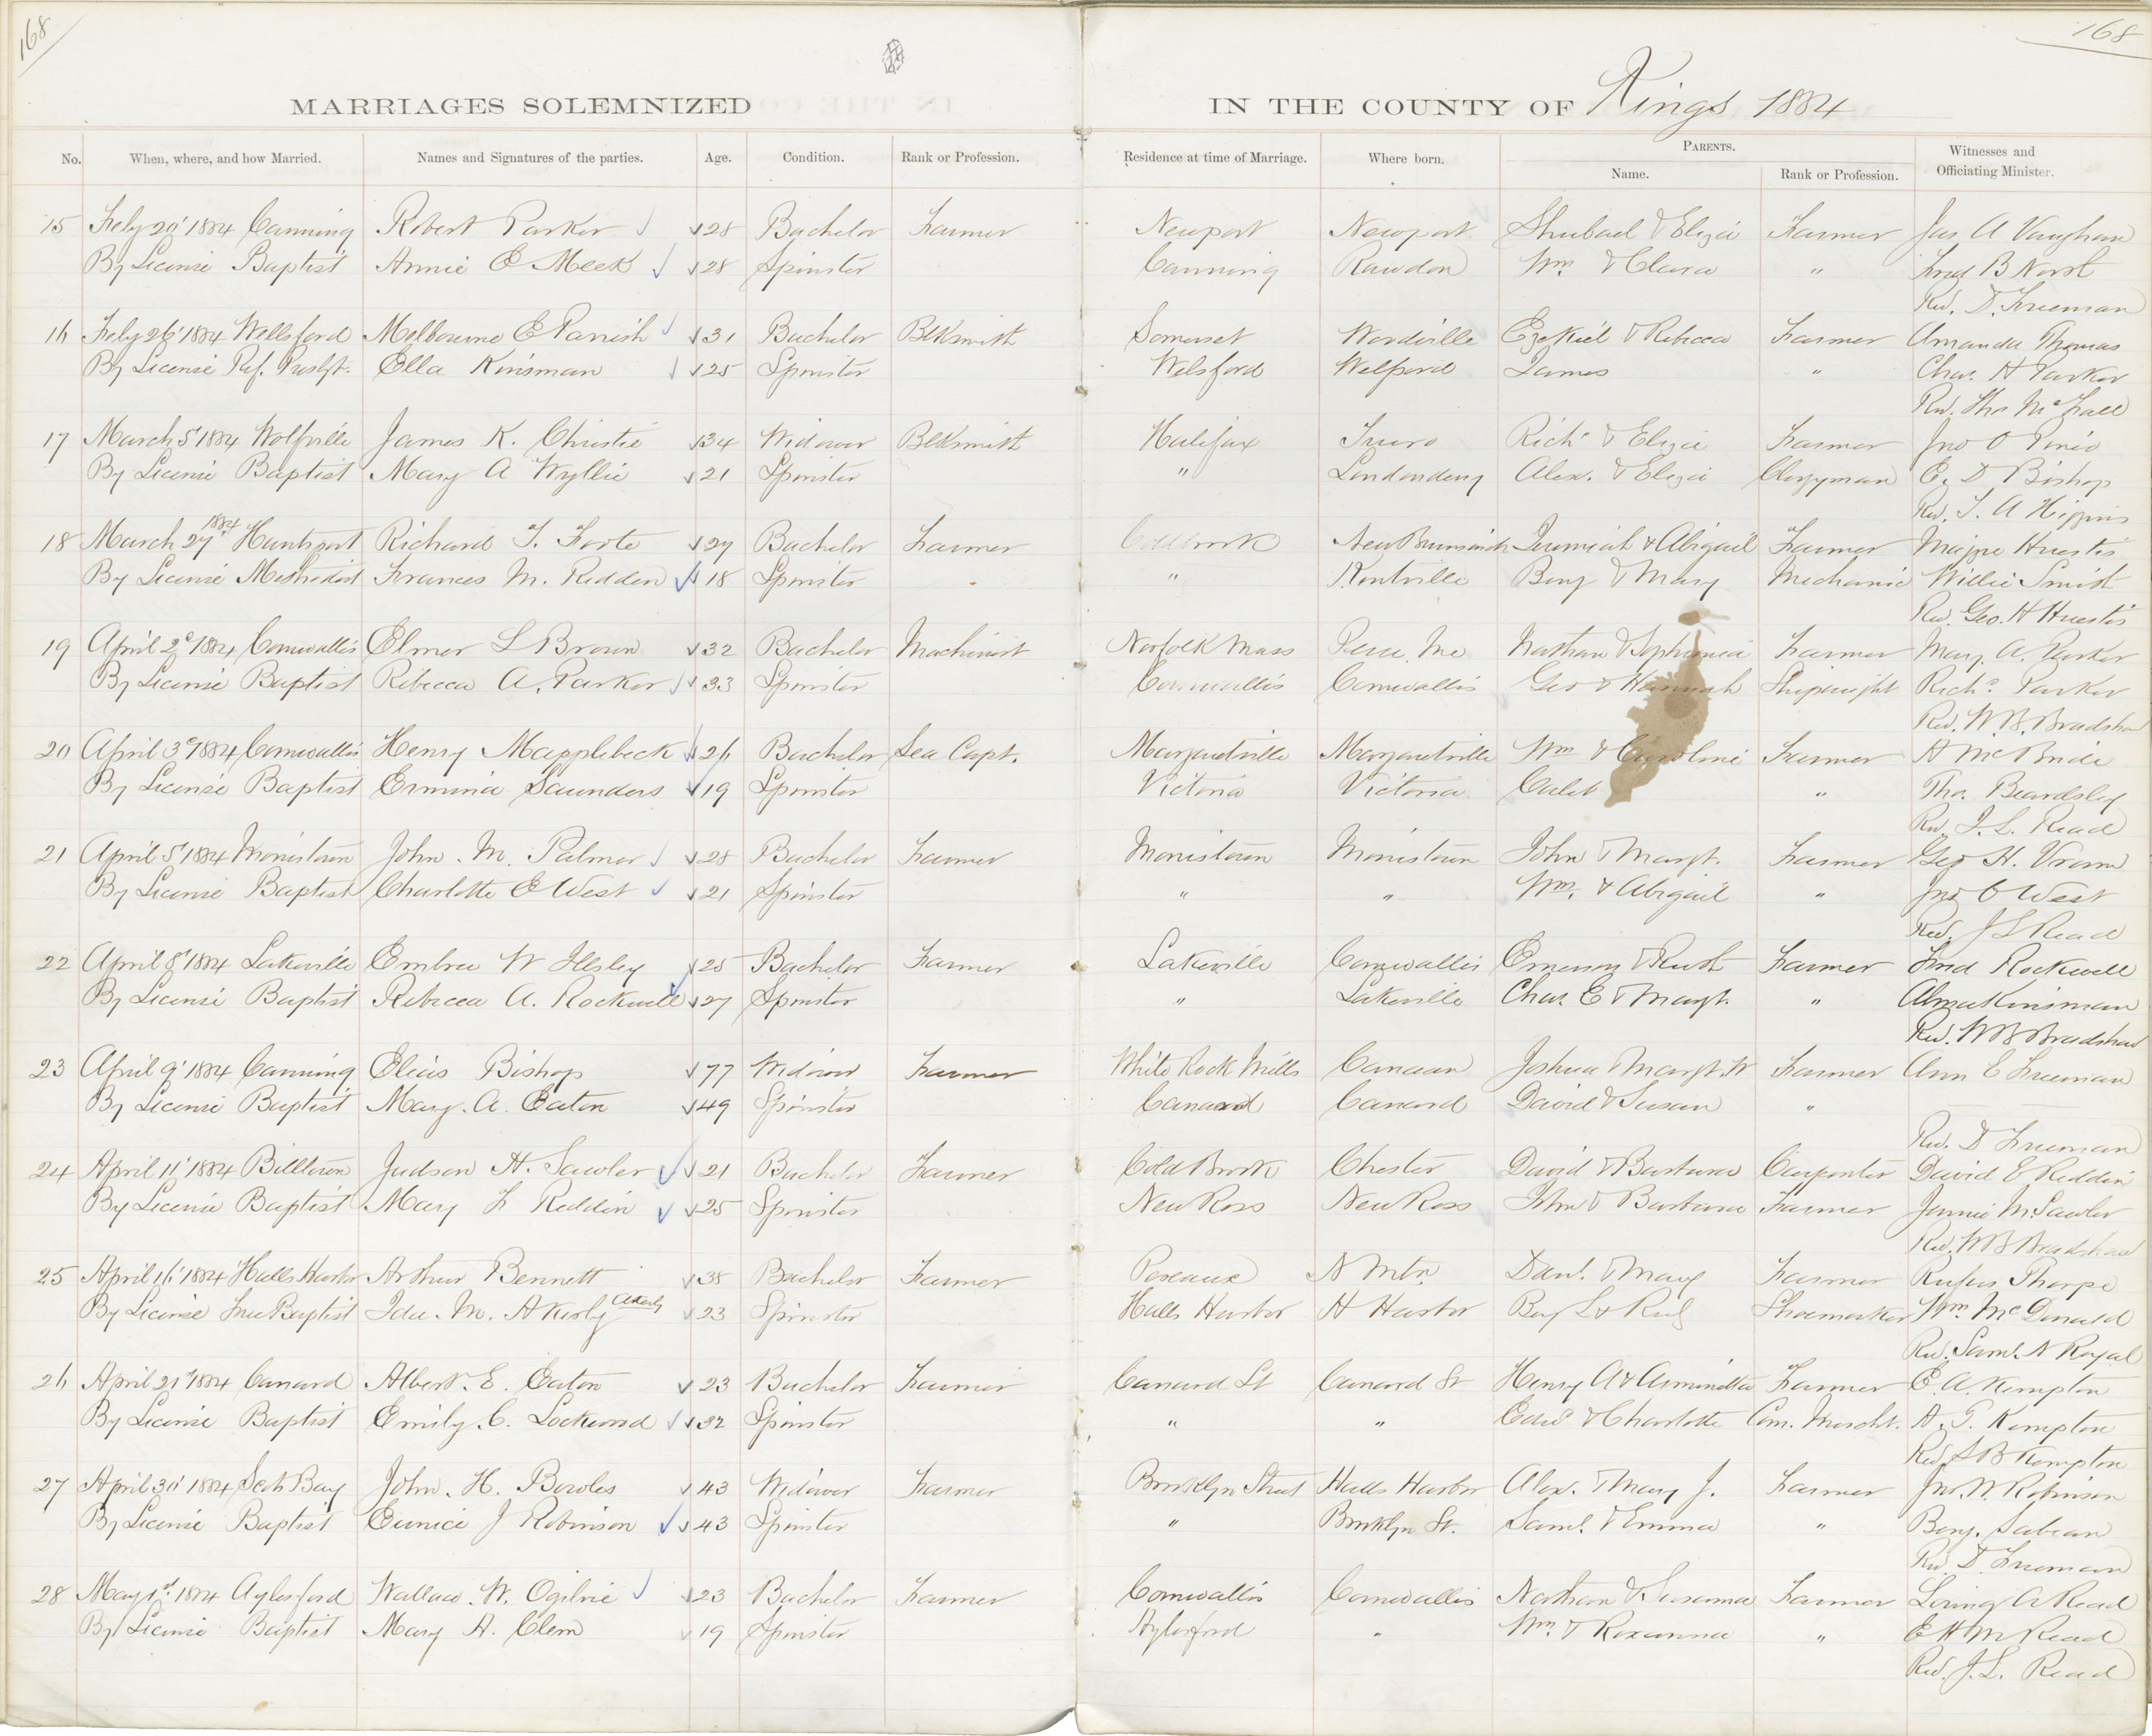 168
168
MARRIAGES SOLEMNIZED
IN THE COUNTY OF Kings 1884
No. When, where, and how Married. Names and Signatures of the parties. Age. Condition. Rank or Profession. Residence at time of Marriage. Where born. PARENTS. Name. Rank or Profession. Witnesses and Officiating Minister.
15 Feby 20' 1884 Canning Robert Parker 28 Bachelor Farmer Newport Newport Shubael & Eliza Farmer Jas A Vaughan
By License Baptist Annie E Meek 28 Spinster Canning Rawdon Wm & Clara " Fred B North
Rev. D. Freeman
16 Feby 26' 1884 Wellsford Melbourne E Parrish 31 Bachelor Blksmith Somerset Woodville Ezekiel & Rebecca Farmer Amanda Thomas
By License Ref. Presbyt. Ella Kinsman 25 Spinster Welsford Welsford James " Chas. H Parker
Rev. Thos McFall
17 March 5' 1884 Wolfville James K. Christie 34 Widower Blksmith Halifax Truro Richd & Eliza Farmer Jno O Pineo
By License Baptist Mary A Wyllie 21 Spinster " Londonderry Alex. & Eliza Clergyman E. D Bishop
Rev. T. A Higgins
18 March 27' 1884 Hantsport Richard T. Foote 27 Bachelor Farmer Coldbrook New Brunswick Jeremiah & Abigail Farmer Huestis
By License Methodist Frances M. Redden 18 Spinster " Kentville Benj & Mary Mechanic Willie Smith
Rev. Geo. H Huestis
19 April 2d 1884 Cornwallis Elmer L Brown 32 Bachelor Machinist Norfolk Mass Peru Me Nathan & Sophronia Farmer Mary. A. Parker
By License Baptist Rebecca A. Parker 33 Spinster Cornwallis Cornwallis Geo & Hannah Shipwright Richd. Parker
Rev. W. B. Bradshaw
20 April 3d 1884 Cornwallis Henry Mapplebeck 26 Bachelor Sea Capt. Margaretville Margaretville Wm & Caroline Farmer A McBride
By License Baptist Erminia Saunders 19 Spinster Victoria Victoria Caleb " Tho. Beardsley
Rev. J. L. Read
21 April 5' 1884 Morristown John. M. Palmer 28 Bachelor Farmer Morristown Morristown John & Margt. Farmer Geo H. Vroom
By License Baptist Charlotte E West 21 Spinster " " Wm. & Abigail " Jno O West
Rev. J L Read
22 April 8' 1884 Lakeville Embree W Illsley 25 Bachelor Farmer Lakeville Cornwallis Emerson & Ruth Farmer Fred Rockwell
By License Baptist Rebecca A. Rockwell 27 Spinster " Lakeville Chas E & Margt. " Alma Kinsman
Rev. W B Bradshaw
23 April 9' 1884 Canning Elias Bishop 77 Widower Farmer White Rock Mills Canaan Joshua & Margt. W Farmer Ann E Freeman
By License Baptist Mary. A. Eaton 49 Spinster Canard Canard David & Susan "
Rev. D Freeman
24 April 11' 1884 Billtown Judson H. Sawler 21 Bachelor Farmer Cold Brook Chester David & Barbara Carpenter David E Redden
By License Baptist Mary F Redden 25 Spinster New Ross New Ross John & Barbara Farmer Jennie M. Sawler
Rev. W B Bradshaw
25 April 16' 1884 Halls Harbor Arthur Bennett 38 Bachelor Farmer Pereaux N Mtn. Danl. & Mary Farmer Rufus Thorpe
By License Free Baptist Ida. M. Akerly Akerly 23 Spinster Halls Harbor H Harbor Benj L & Shoemaker Wm. McDonald
Rev. Saml. N Royal
26 April 21' 1884 Canard Albert. E. Eaton 23 Bachelor Farmer Canard St Canard St Henry A & Arminetta Farmer E. A. Kempton
By License Baptist Emily. C. Lockwood 32 Spinster " " Edwd & Charlotte Com. Mercht. A. T. Kempton
Rev S B Kempton
27 April 30' 1884 Scots Bay John. H. Bowles 43 Widower Farmer Brooklyn Street Halls Harbor Alex. & Mary J. Farmer Jno. W. Robinson
By License Baptist Eunice J Robinson 43 Spinster " Brooklyn St. Saml. & Emma " Benj. Sabean
Rev. D. Freeman
28 May 1st. 1884 Aylesford Wallace. W. Ogilvie 23 Bachelor Farmer Cornwallis Cornwallis Nathan & Susanna Farmer Loring A Read
By License Baptist Mary A. Clem 19 Spinster Aylesford " Wm. & Roxanna " E H M Read
Rev. J. L. Read